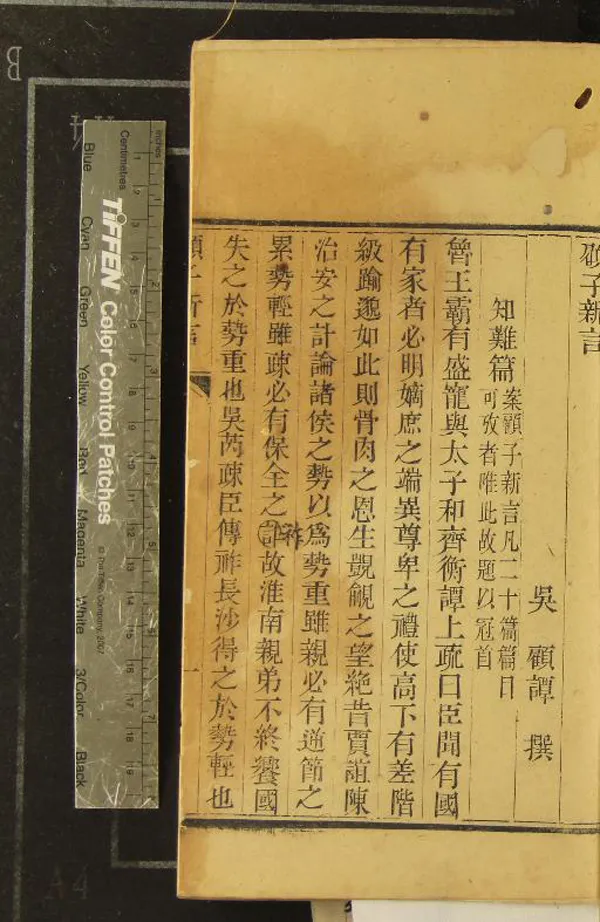 顧子新言
吳 顧譚 撰
知難篇案顧子新言凡二十篇篇目
可攷者唯此故題以冠首
魯王霸有盛寵與太子和齊衡譚上疏曰臣聞有國
有家者必明嫡庶之端異尊卑之禮使高下有差階
級踰邈如此則骨肉之恩生覬覦之望絶昔賈誼陳
治安之計論諸侯之勢以爲勢重雖親必有逆節之
累勢輕雖疎必有保全之祚故淮南親弟不終饗國
失之於勢重也吳芮疎臣傳祚長沙得之於勢輕也
顧子新言
一
inches
Centimetres
TIFFEN Color Control Patches
© The Tiffen Company, 2007
Blue
Cyan
Green
Yellow
Red
Magenta
White
3/Color
Black
B
A4